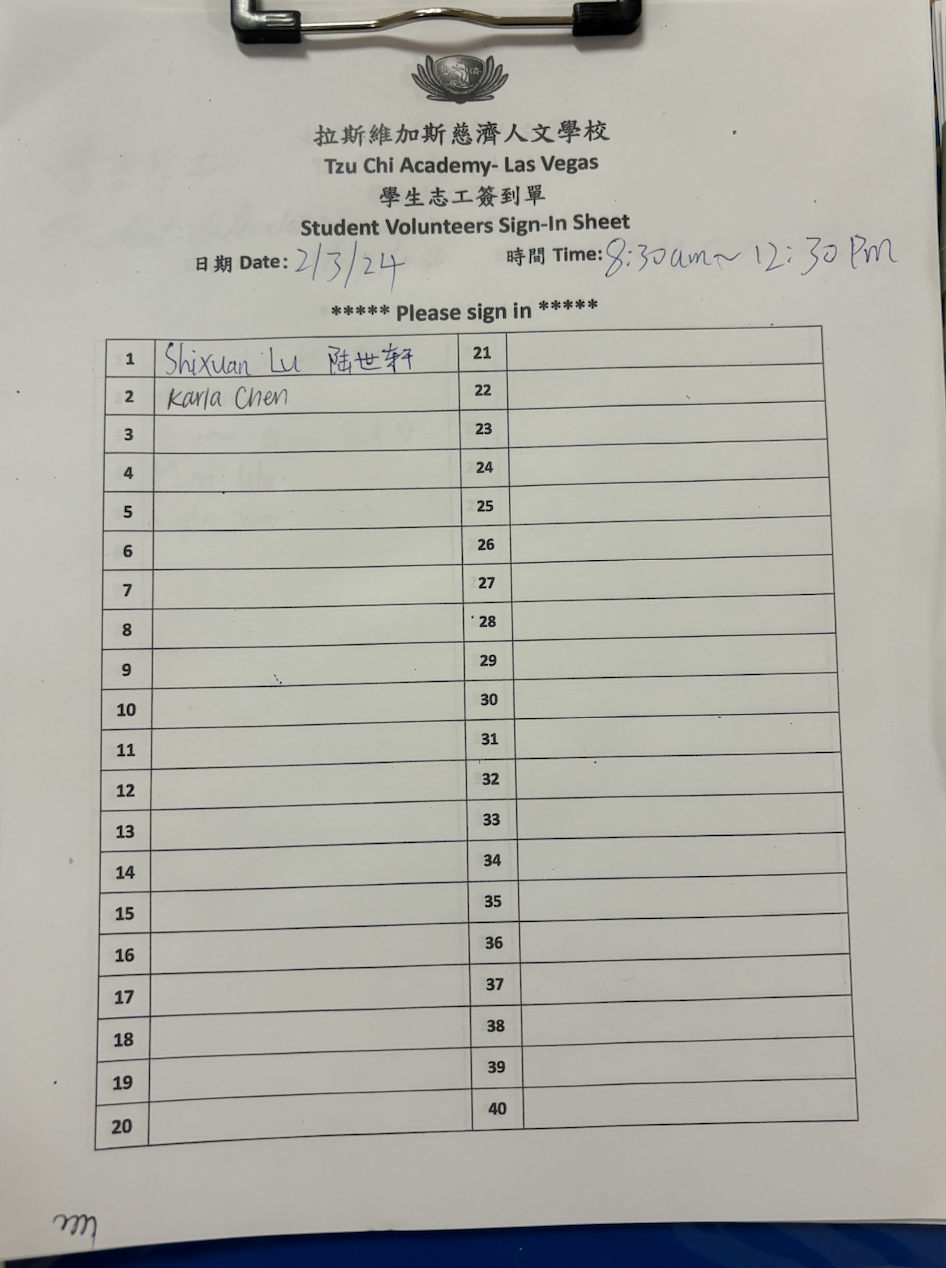 拉斯維加斯慈濟人文學校
Tzu Chi Academy- Las Vegas
學生志工簽到單
Student Volunteers Sign-In Sheet
日期 Date: 2/3/24 時間 Time: 8:30am~12:30 Pm
***** Please sign in *****
1 Shixuan Lu 陆世轩 21
2 Karla Chen 22
3 23
4 24
5 25
6 26
7 27
8 28
9 29
10 30
11 31
12 32
13 33
14 34
15 35
16 36
17 37
18 38
19 39
20 40